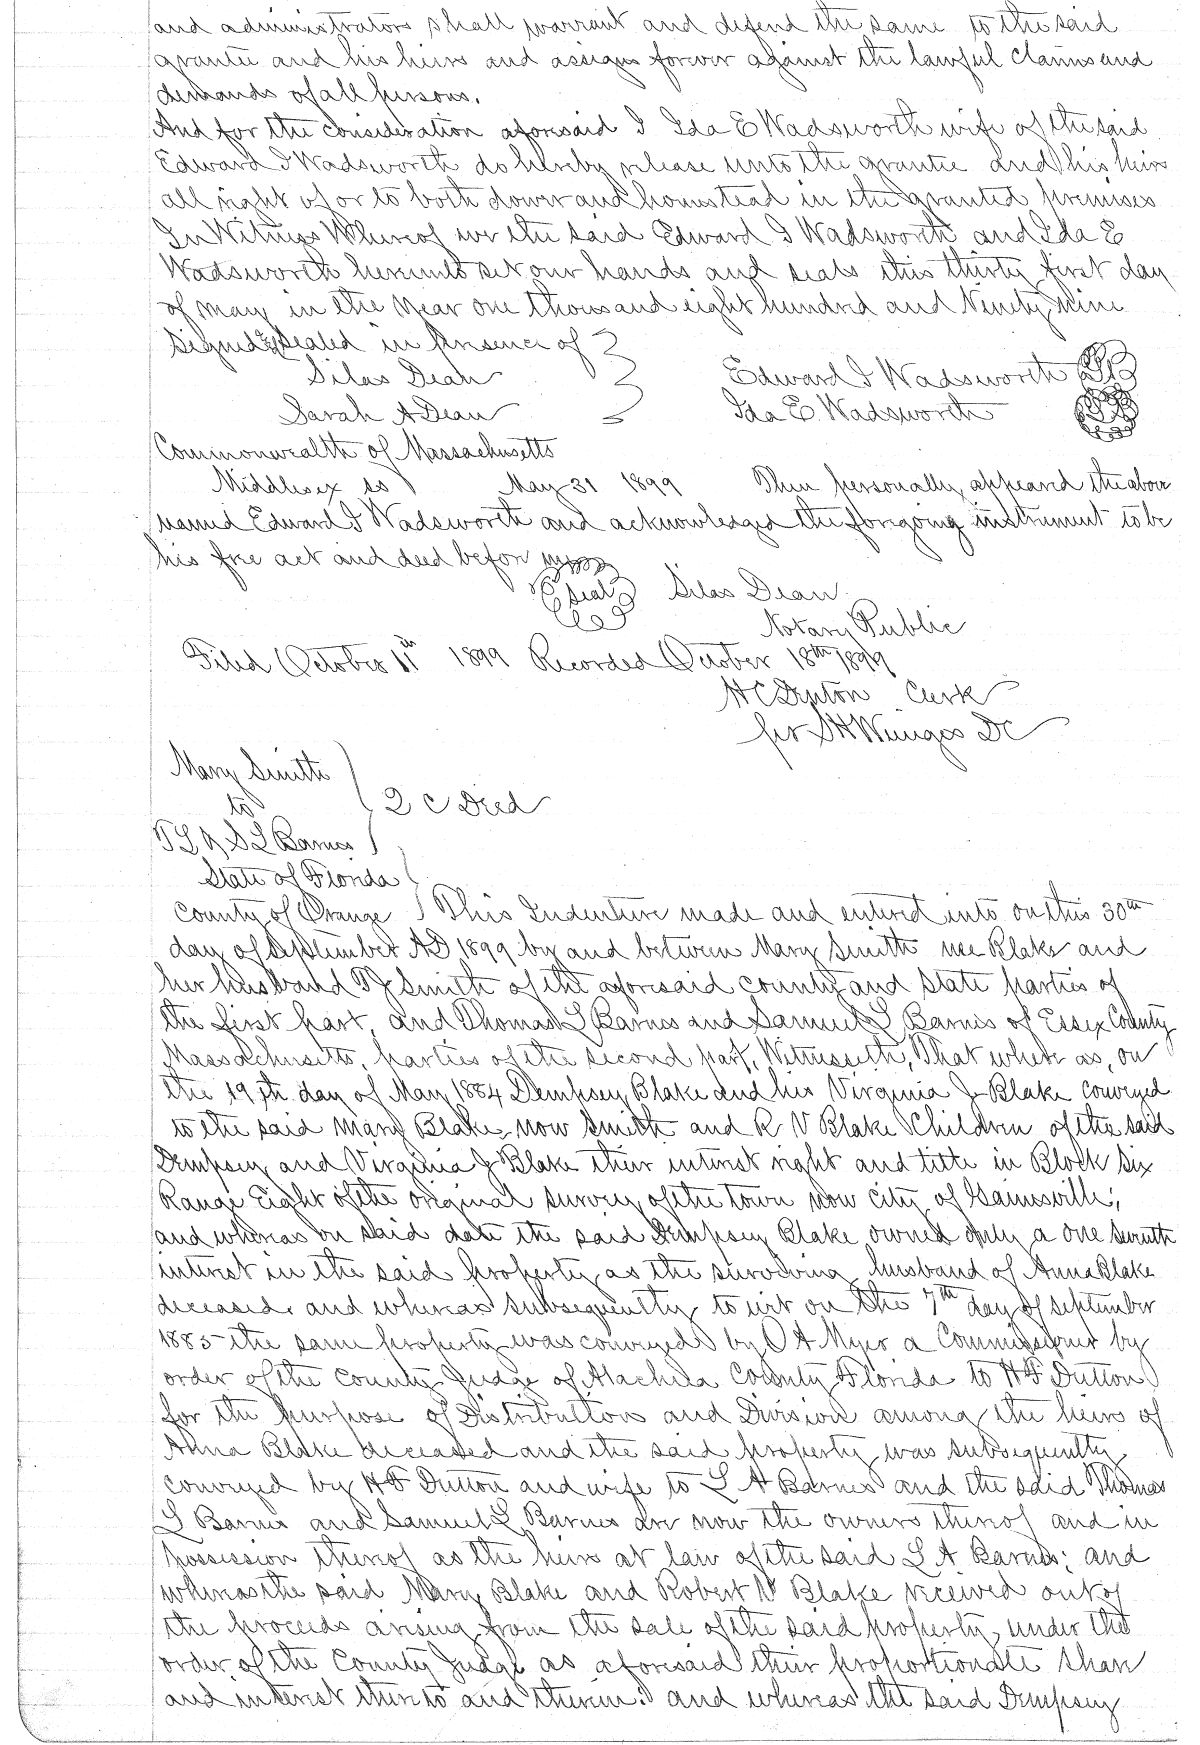 and administrators shall warrant and defend the same to the said
grantee and his heirs and assigns forever against the lawful claims and
demands of all persons.
And for the consideration aforesaid I Ida E Wadsworth wife of the said
Edward I Wadsworth do hereby release unto the grantee and his heirs
all right of or to both dower and homestead in the granted premises
In Witness Whereof we the said Edward I Wadsworth and Ida E
Wadsworth hereunto set our hands and seals this thirty first day
of May in the year one thousand eight hundred and Ninety Nine
Signed & Sealed in Presence of
Silas Dean Edward I Wadsworth
Sarah A Dean Ida E Wadsworth
Commonwealth of Massachusetts
Middlesex ss May 31 1899 Then personally appeared the above
named Edward I Wadsworth and acknowledged the foregoing instrument to be
his free act and deed before me
Seal Silas Dean
Notary Public
Filed October 11th 1899 Recorded October 18th 1899
H C Denton Clerk
per S H Wienges DC
Mary Smith
to 2 C Deed
T L & S L Barnes
State of Florida
County of Orange This Indenture made and entered into on this 30th
day of September AD 1899 by and between Mary Smith nee Blake and
her husband T J Smith of the aforesaid county and State parties of
the first part, and Thomas L Barnes and Samuel L Barnes of Essex County
Massachusetts, parties of the second part, Witnesseth, That where as, on
the 19th day of May 1884 Dempsey Blake and his Virginia J Blake conveyed
to the said Mary Blake now Smith and R V Blake Children of the said
Dempsey and Virginia J Blake their interest right and title in Block Six
Range Eight of the original survey of the town now city of Gainsville;
and whereas on said date the said Dempsey Blake owned only a one seventh
interest in the said property as the surviving husband of Anna Blake
deceased. and whereas subsequently to wit on the 7th day of September
1885 the same property was conveyed by O A Myer a Commissioner by
order of the County Judge of Alachua County Florida to H F Dutton
for the purpose of Distribution and Division among the heirs of
Anna Blake deceased and the said property was subsequently
conveyed by H F Dutton and wife to L A Barnes and the said Thomas
L Barnes and Samuel L Barnes are now the owners thereof and in
possession thereof as the heirs at law of the said L A Barnes; and
whereas the said Mary Blake and Robert V Blake received out of
the proceeds arising from the sale of the said property, under the
order of the County Judge as aforesaid their proportionate share
and interest thereto and therein: and whereas the said Dempsey